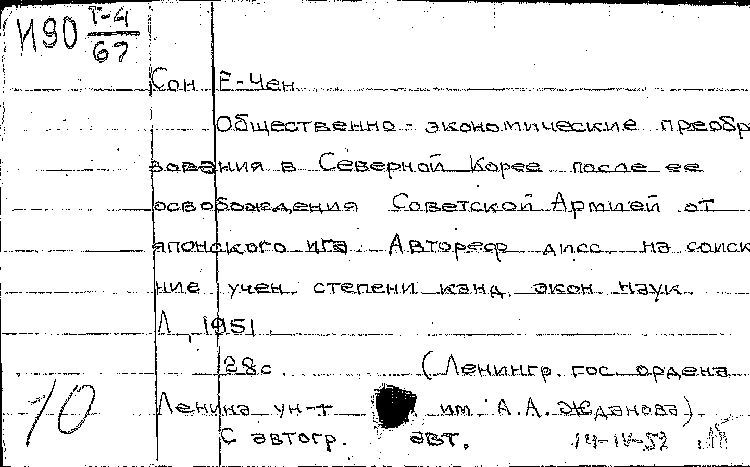 И90 Т-4
67
Сон Е-Чен
Общественно-экономические преобр
зования в Северной Корее после ее
освобождения Советской Армией от
японского ига. Автореф. дисс. на соиск
ние учен. степени канд. экон. наук.
Л., 1951.
28с. (Ленингр. гос. ордена
Ленина ун-т им. А.А. Жданова)
С автогр. авт. 14-IV-52
10